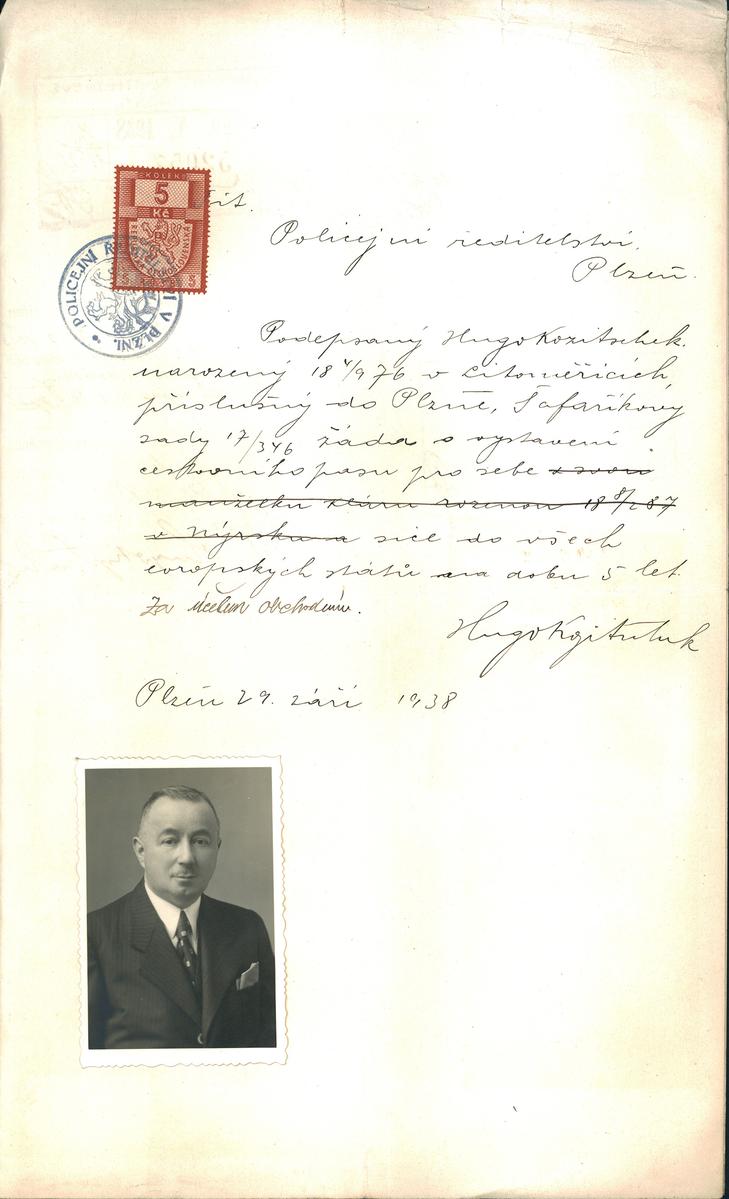 KOLEK
5
Kč
POLICEJNÍ ŘEDITELSTVÍ V PLZNI.
Policejní ředitelství.
Plzeň.
Podepsaný Hugo Kozitschek.
narozený 18 4/9 76 v Litoměřicích,
příslušný do Plzně, Šafaříkovy
sady 17/346 žádá o vystavení
cestovního pasu pro sebe a svou
manželku Kláru rozenou 18 8/2 87
v Nýrsku a sice do všech
evropských států na dobu 5 let.
Za účelem obchodním.
Hugo Kozitschek
Plzeň 29. září 1938